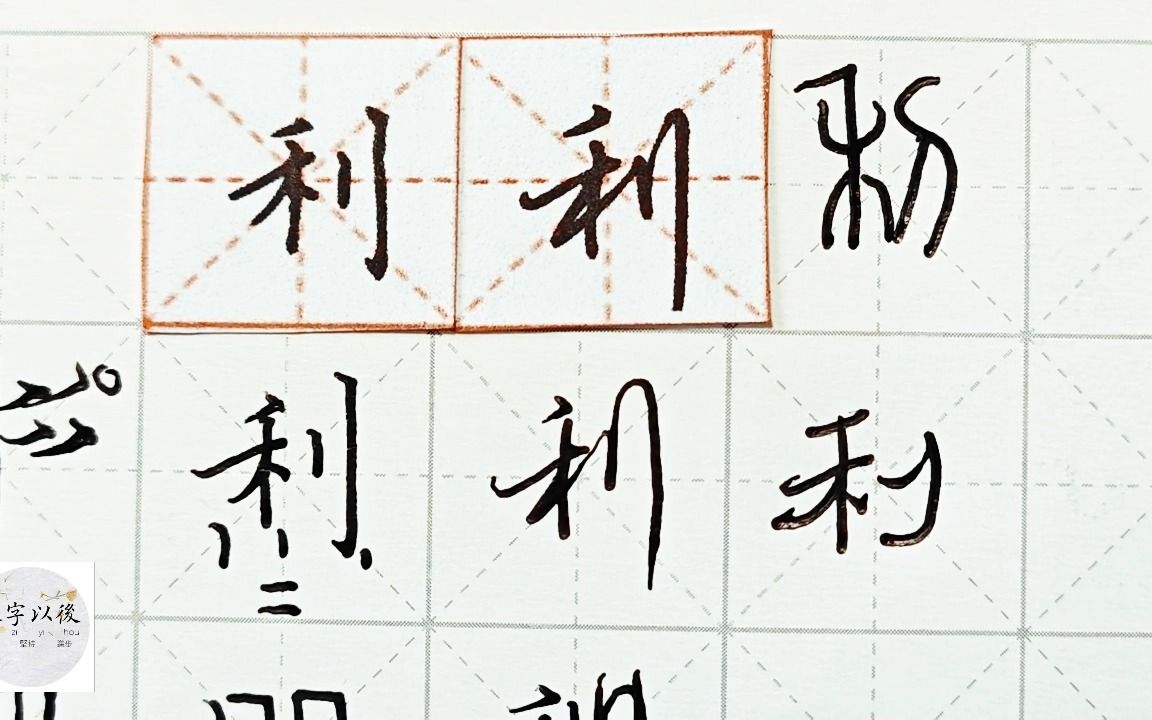 利 利 利
利 利 利
字以後
zi yi hou
堅持 進步